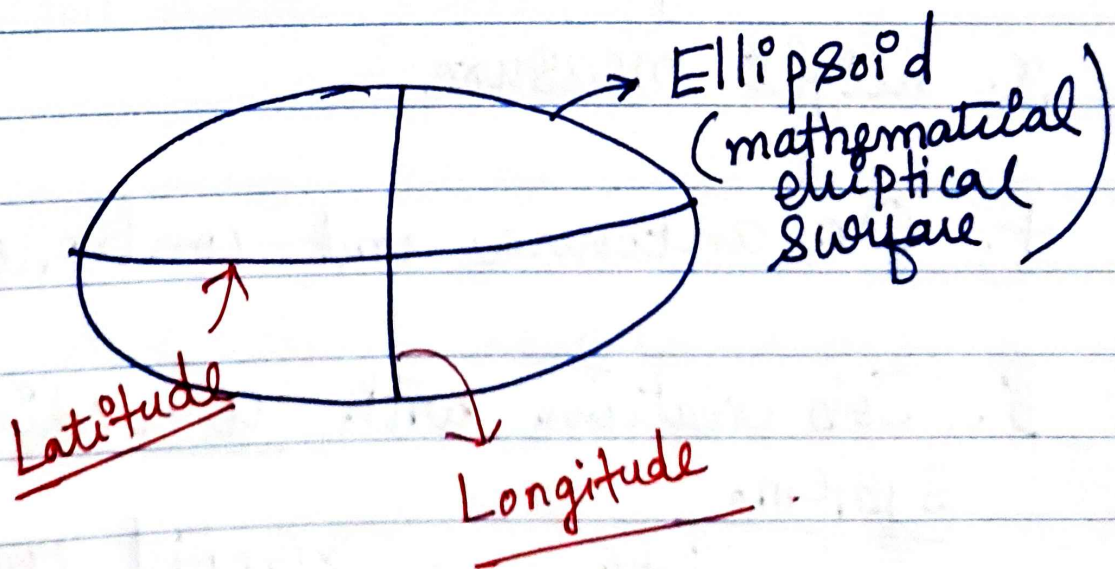 Ellipsoid
(mathematical
elliptical
surface)
Latitude
Longitude.